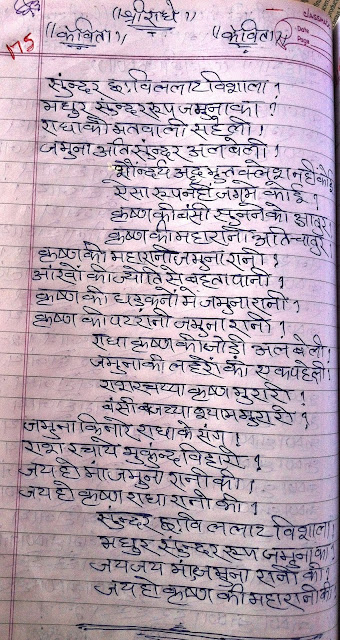 ॥श्रीराधे॥
॥कविता॥ ॥कविता॥
175
Date
Page
सुन्दर छवि ललाट विशाला।
मधुर सुन्दर रूप जमुना का।
राधा की मतवाली सहेली।
जमुना अति सुन्दर अलबेली।
सौंन्दर्य अद्भुत क्लेश नही कोई
ऐसा रूप नही जग में कोई।
कृष्ण की बंसी सुनने को आतुर।
कृष्ण की महारानी अति चातुर।
कृष्ण की महारानी जमुना रानी।
आंखों की ज्योति से बहता पानी।
कृष्ण की धड़कनों में जमुना रानी।
कृष्ण की पटरानी जमुना रानी।
राधा कृष्ण की जोड़ी अलबेली।
जमुना की लहरों की एक पहेली।
रास रचय्या कृष्ण मुरारी।
बंसी बजय्या श्याम मुरारी।
जमुना किनारे राधा के संग।
रास रचाये मुकुन्द विहारी।
जय हो मां जमुना रानी की।
जय हो कृष्ण राधा रानी की।
सुन्दर छवि ललाट विशाला।
मधुर सुन्दर रूप जमुना का।
जय जय मां जमुना रानी की।
जय हो कृष्ण की महारानी की।